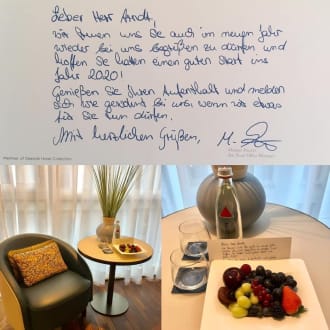 Lieber Herr Arndt,
wir freuen uns Sie auch im neuen Jahr
wieder bei uns begrüßen zu dürfen und
hoffen Sie hatten einen guten Start ins
Jahr 2020!
Genießen Sie Ihren Aufenthalt und melden
Sich gerne bei uns, wenn wir etwas
für Sie tun dürfen.
Mit herzlichen Grüßen,
Member of Hotel Collection